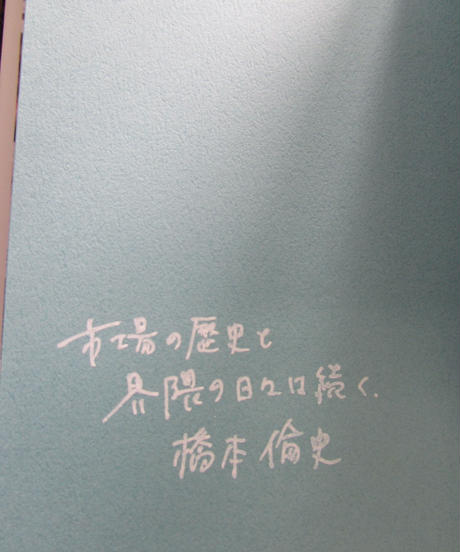 市場の歴史と
界隈の日々は続く.
橋本倫史